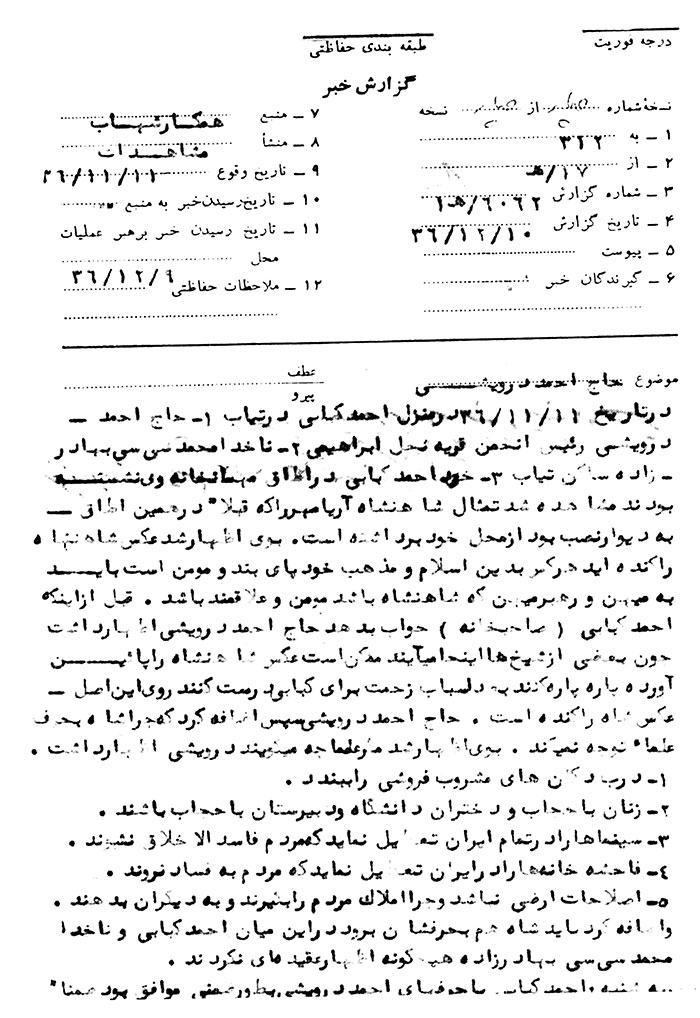 درجه فوریت
طبقه بندی حفاظتی
گزارش خبر
نسخهٔ شماره از نسخه
۱ ــ به ۳۱۲
۲ ــ از ۱۷/هـ
۳ ــ شماره گزارش ۶۰۶۲/هـ۱
۴ ــ تاریخ گزارش ۳۶/۱۲/۱۰
۵ ــ پیوست
۶ ــ گیرندگان خبر
۷ ــ منبع همکار شهاب
۸ ــ منشأ مشاهدات
۹ ــ تاریخ وقوع ۳۶/۱۱/۱۱
۱۰ ــ تاریخ رسیدن خبر به منبع
۱۱ ــ تاریخ رسیدن خبر برهبر عملیات
محل ۳۶/۱۲/۹
۱۲ ــ ملاحظات حفاظتی
موضوع حاج احمد درویشی
عطف
پیرو
در تاریخ ۳۶/۱۱/۱۱ در منزل احمد کبابی در تیاب ۱ــ حاج احمد ــ
درویشی رئیس انجمن قریه نخل ابراهیمی ۲ــ ناخدا محمد سی سی بهادر
ــ زاده ساکن تیاب ۳ــ خود احمد کبابی در اطاق مهمانخانه وی نشسته
بودند مشاهده شد تمثال شاهنشاه آریامهر را که قبلا" در همین اطاق ــ
به دیوار نصب بود از محل خود برداشته است. بوی اظهار شد عکس شاهنشاه
را کنده اید هر کس بدین اسلام و مذهب خود پای بند و مومن است باید
به میهن و رهبر میهن که شاهنشاه باشد مومن و علاقمند باشد . قبل از اینکه
احمد کبابی ( صاحبخانه ) جواب بدهد حاج احمد درویشی اظهار داشت
چون بعضی از شیخ ها اینجا میآیند ممکن است عکس شاهنشاه را پائین
آورده پاره پاره کنند به و اسباب زحمت برای کبابی درست کنند روی این اصل ــ
عکس شاه را کنده است . حاج احمد درویشی سپس اضافه کرد که چرا شاه بحرف
علما توجه نمیکند . بوی اظهار شد مگر علما چه میگویند درویشی اظهار داشت .
۱ــ درب دکان های مشروب فروشی را ببندد .
۲ــ زنان با حجاب و دختران دانشگاه و دبیرستان با حجاب باشند .
۳ــ سینماها را در تمام ایران تعطیل نماید که مردم فاسد الاخلاق نشوند .
۴ــ فاحشه خانه ها را در ایران تعطیل نماید که مردم به فساد نروند .
۵ــ اصلاحات ارضی نباشد و چرا املاک مردم را بگیرند و به دیگران بدهند .
و اضافه کرد باید شاه هم بحرفشان برود در این میان احمد کبابی و ناخدا
محمد سی سی بهادرزاده هیچگونه اظهار عقیده ای نکردند .
احمد کبابی با حرفهای احمد درویشی بطور ضمنی موافق بود ضمنا"